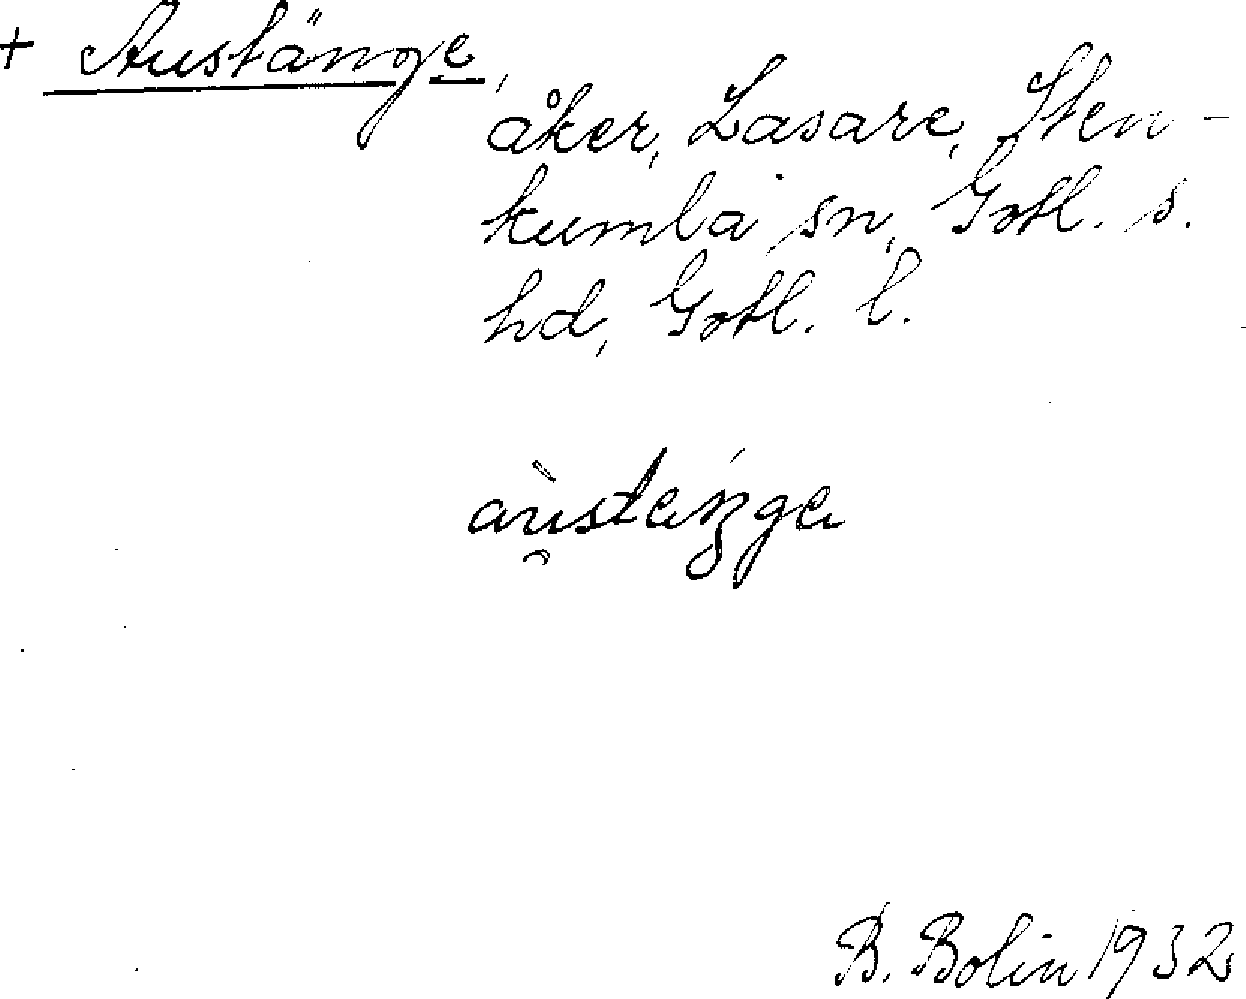 + Austänge,
åker, Lasare, Sten-
kumla sn, Gotl. s.
hd, Gotl. l.
B. Bolin 1932